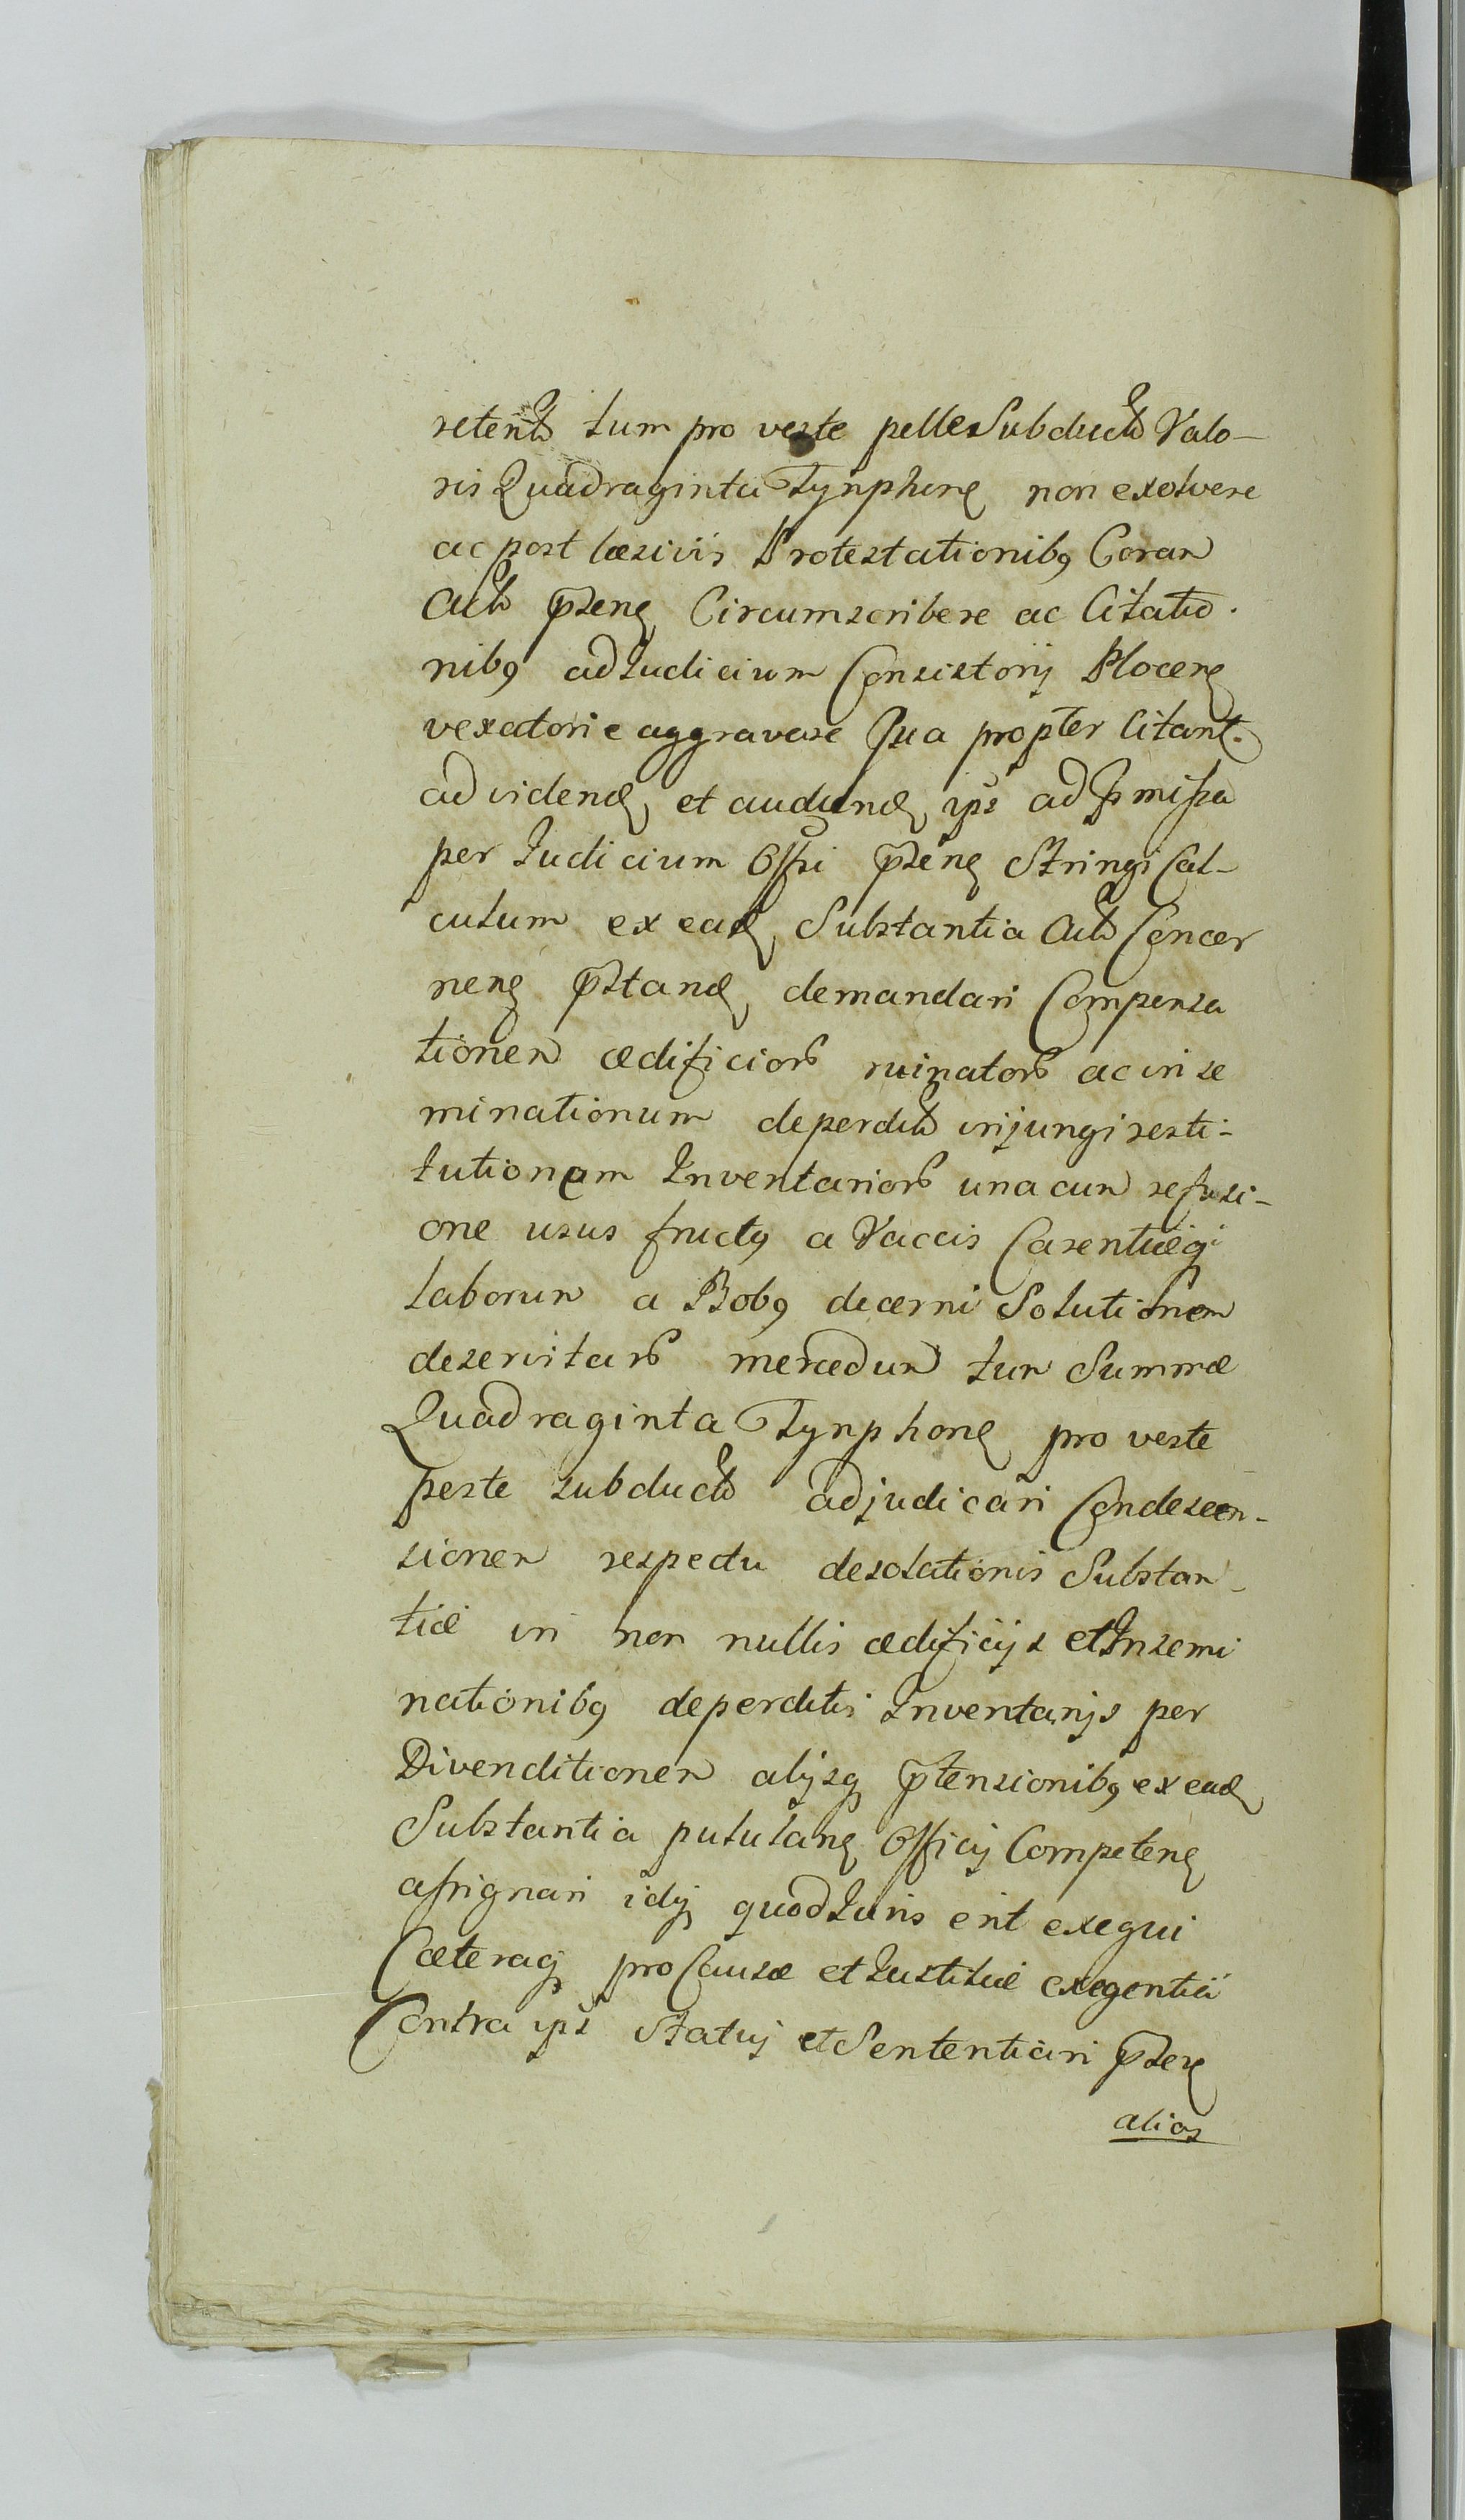 retent tum pro veste pelle Subduct Valo-
ris Quadraginta Tynphon non exolvere
ac post læsivis Protestationibq Coram
Act pñtens Circumscribere ac Citatio-
nibq ad Iudicium Consistorij Plocens
vexatorie aggravare Qua propter Citant.
ad vidend et audiend ips ad pmissa
per Iudicium Offi pñtens Stringi Cal-
culum ex ead Substantia Act Concer
nens pstand demandari Compensa
tionem ædificior ruinator ac inse
minationum deperdit injungi resti-
tutionem Inventarior una cum refusi-
one usus fructq a Vaccis Carentiæq
laborum a Bobq decerni Solutionem
deservitar mercedum tum Summæ
Quadraginta Tynphon pro veste
peste subduct adjudicari Condescen-
sionem respectu desolationis Substan-
tiæ in non nullis ædificijs et Insemi
nationibq deperditis Inventarijs per
Divenditionem alijsq ptensionibq ex ead
Substantia pululans Officij Competens
assignari idq quod Iuris erit exequi
Cæteraq pro Causæ et Iustitiæ exegentia
Contra ips Statuj et Sententiari pñter
alias